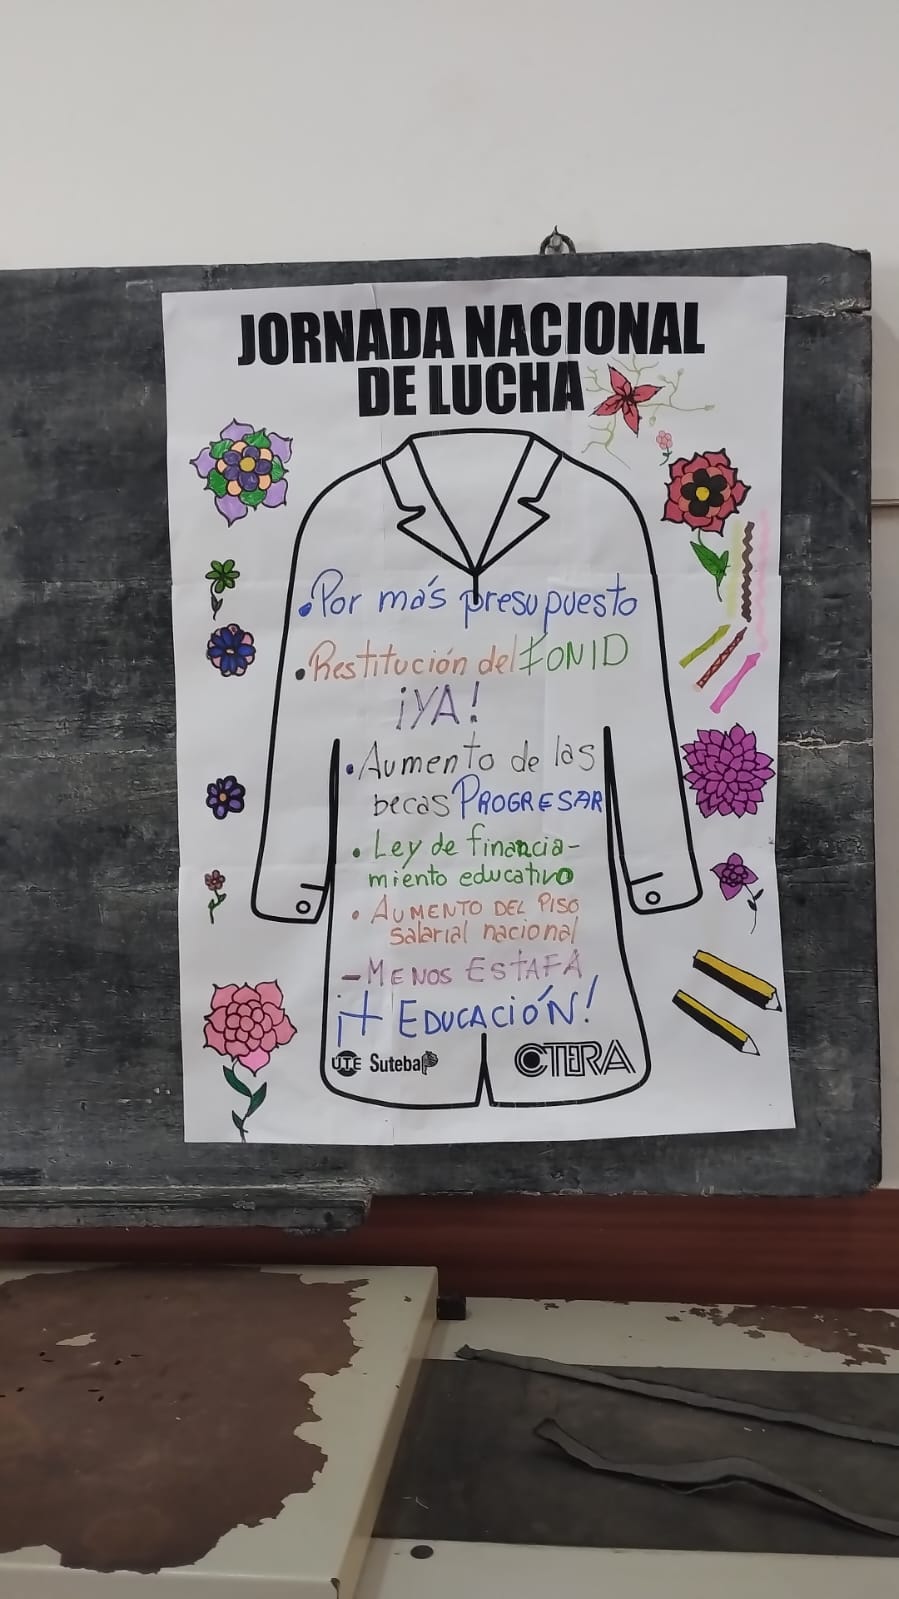 JORNADA NACIONAL
DE LUCHA
• Por más presupuesto
• Restitución del FONID
¡YA!
• Aumento de las
becas PROGRESAR
• Ley de financia-
miento educativo
• AUMENTO DEL PISO
salarial nacional
- MENOS ESTAFA
¡+ EDUCACIÓN!
UTE Suteba CTERA